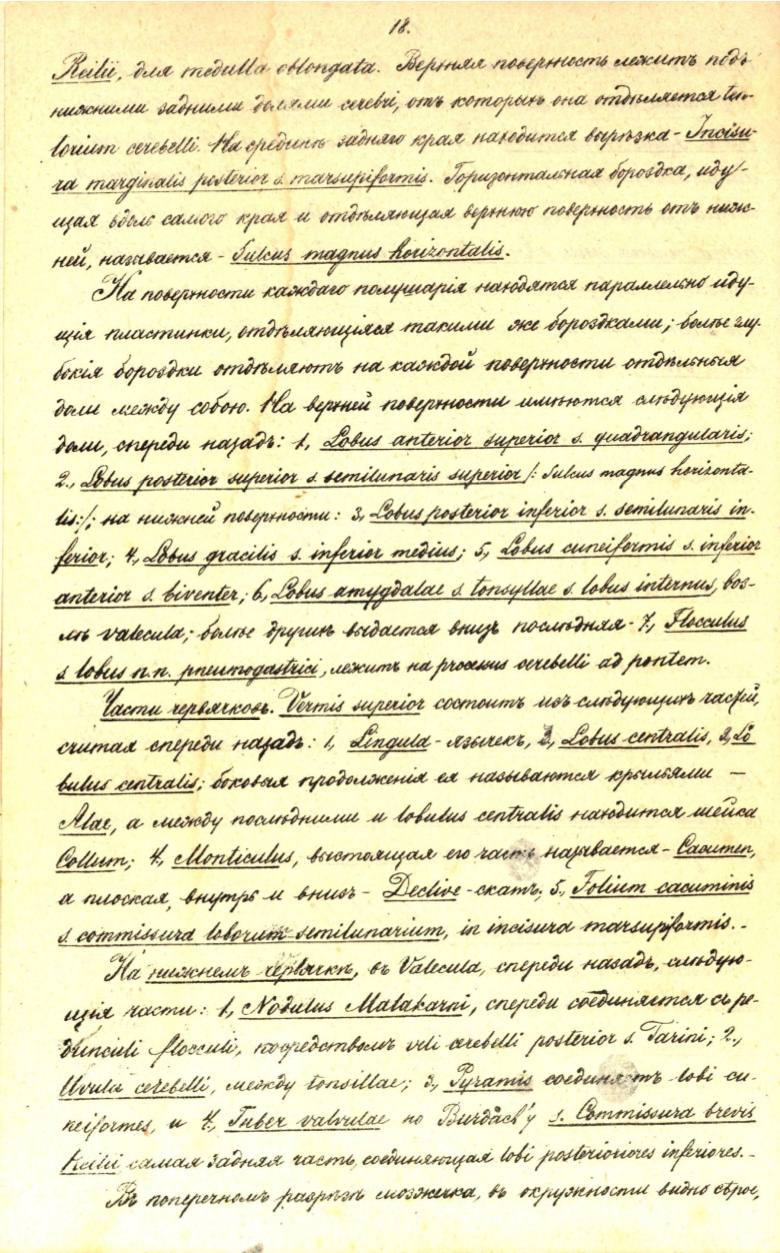 18.
Reilii, для medulla oblongata. Верхняя поверхность лежитъ подъ
нижними задними долями cerebri, отъ которыхъ она отдѣляется ten-
torium cerebelli. На срединѣ задняго края находится вырѣзка - Incisu-
ra marginalis posterior s. marsupiformis. Горизонтальная бороздка, иду-
щая вдоль самого края и отдѣляющая верхнюю поверхность отъ ниж-
ней, называется - Sulcus magnus horizontalis.
На поверхности каждаго полушарія находятся параллельно иду-
щія пластинки, отдѣляющіяся такими же бороздками; болѣе глу-
бокія бороздки отдѣляютъ на каждой поверхности отдѣльныя
доли между собою. На верхней поверхности имѣются слѣдующія
доли, спереди назадъ: 1, Lobus anterior superior s. quadrangularis;
2., Lobus posterior superior s. semilunaris superior /: Sulcus magnus horizonta-
lis:/; на нижней поверхности: 3, Lobus posterior inferior s. semilunaris in-
ferior; 4, Lobus gracilis s. inferior medius; 5, Lobus cuneiformis s. inferior
anterior s. biventer; 6, Lobus amygdalae s. tonsyllae s. lobus internus, воз-
лѣ valecula; болѣе другихъ выдается внизъ послѣдняя - 7, Flocculus
s. lobus n.n. pneumogastrici, лежитъ на processus cerebelli ad pontem.
Части червячковъ. Vermis superior состоитъ изъ слѣдующихъ частей,
считая спереди назадъ: 1, Lingula - язычекъ, 2, Lobus centralis, 3, Lo-
bulus centralis; боковыя продолженія ея называются крыльями —
Alae, а между послѣдними и lobulus centralis находится шейка
Collum; 4, Monticulus, выстоящая его часть называется - Cacumen,
а плоская, внутрь и внизъ - Declive - скатъ; 5, Folium cacuminis
s. commissura loborum semilunarium, in incisura marsupiformis. -
На нижнемъ червячкѣ, въ Valecula, спереди назадъ, слѣдую-
щія части: 1, Nodulus Malakarni, спереди соединяется съ pe-
dunculi flocculi, посредствомъ veli cerebelli posterior s. Tarini; 2.,
Uvula cerebelli, между tonsillae; 3, Pyramis соединяетъ lobi cu-
neiformes, и 4, Tuber valvulae по Burdach'у s. Commissura brevis
Reilii самая задняя часть, соединяющая lobi posterioriores inferiores. -
Въ поперечномъ разрѣзѣ мозжечка, въ окружности видно сѣрое,